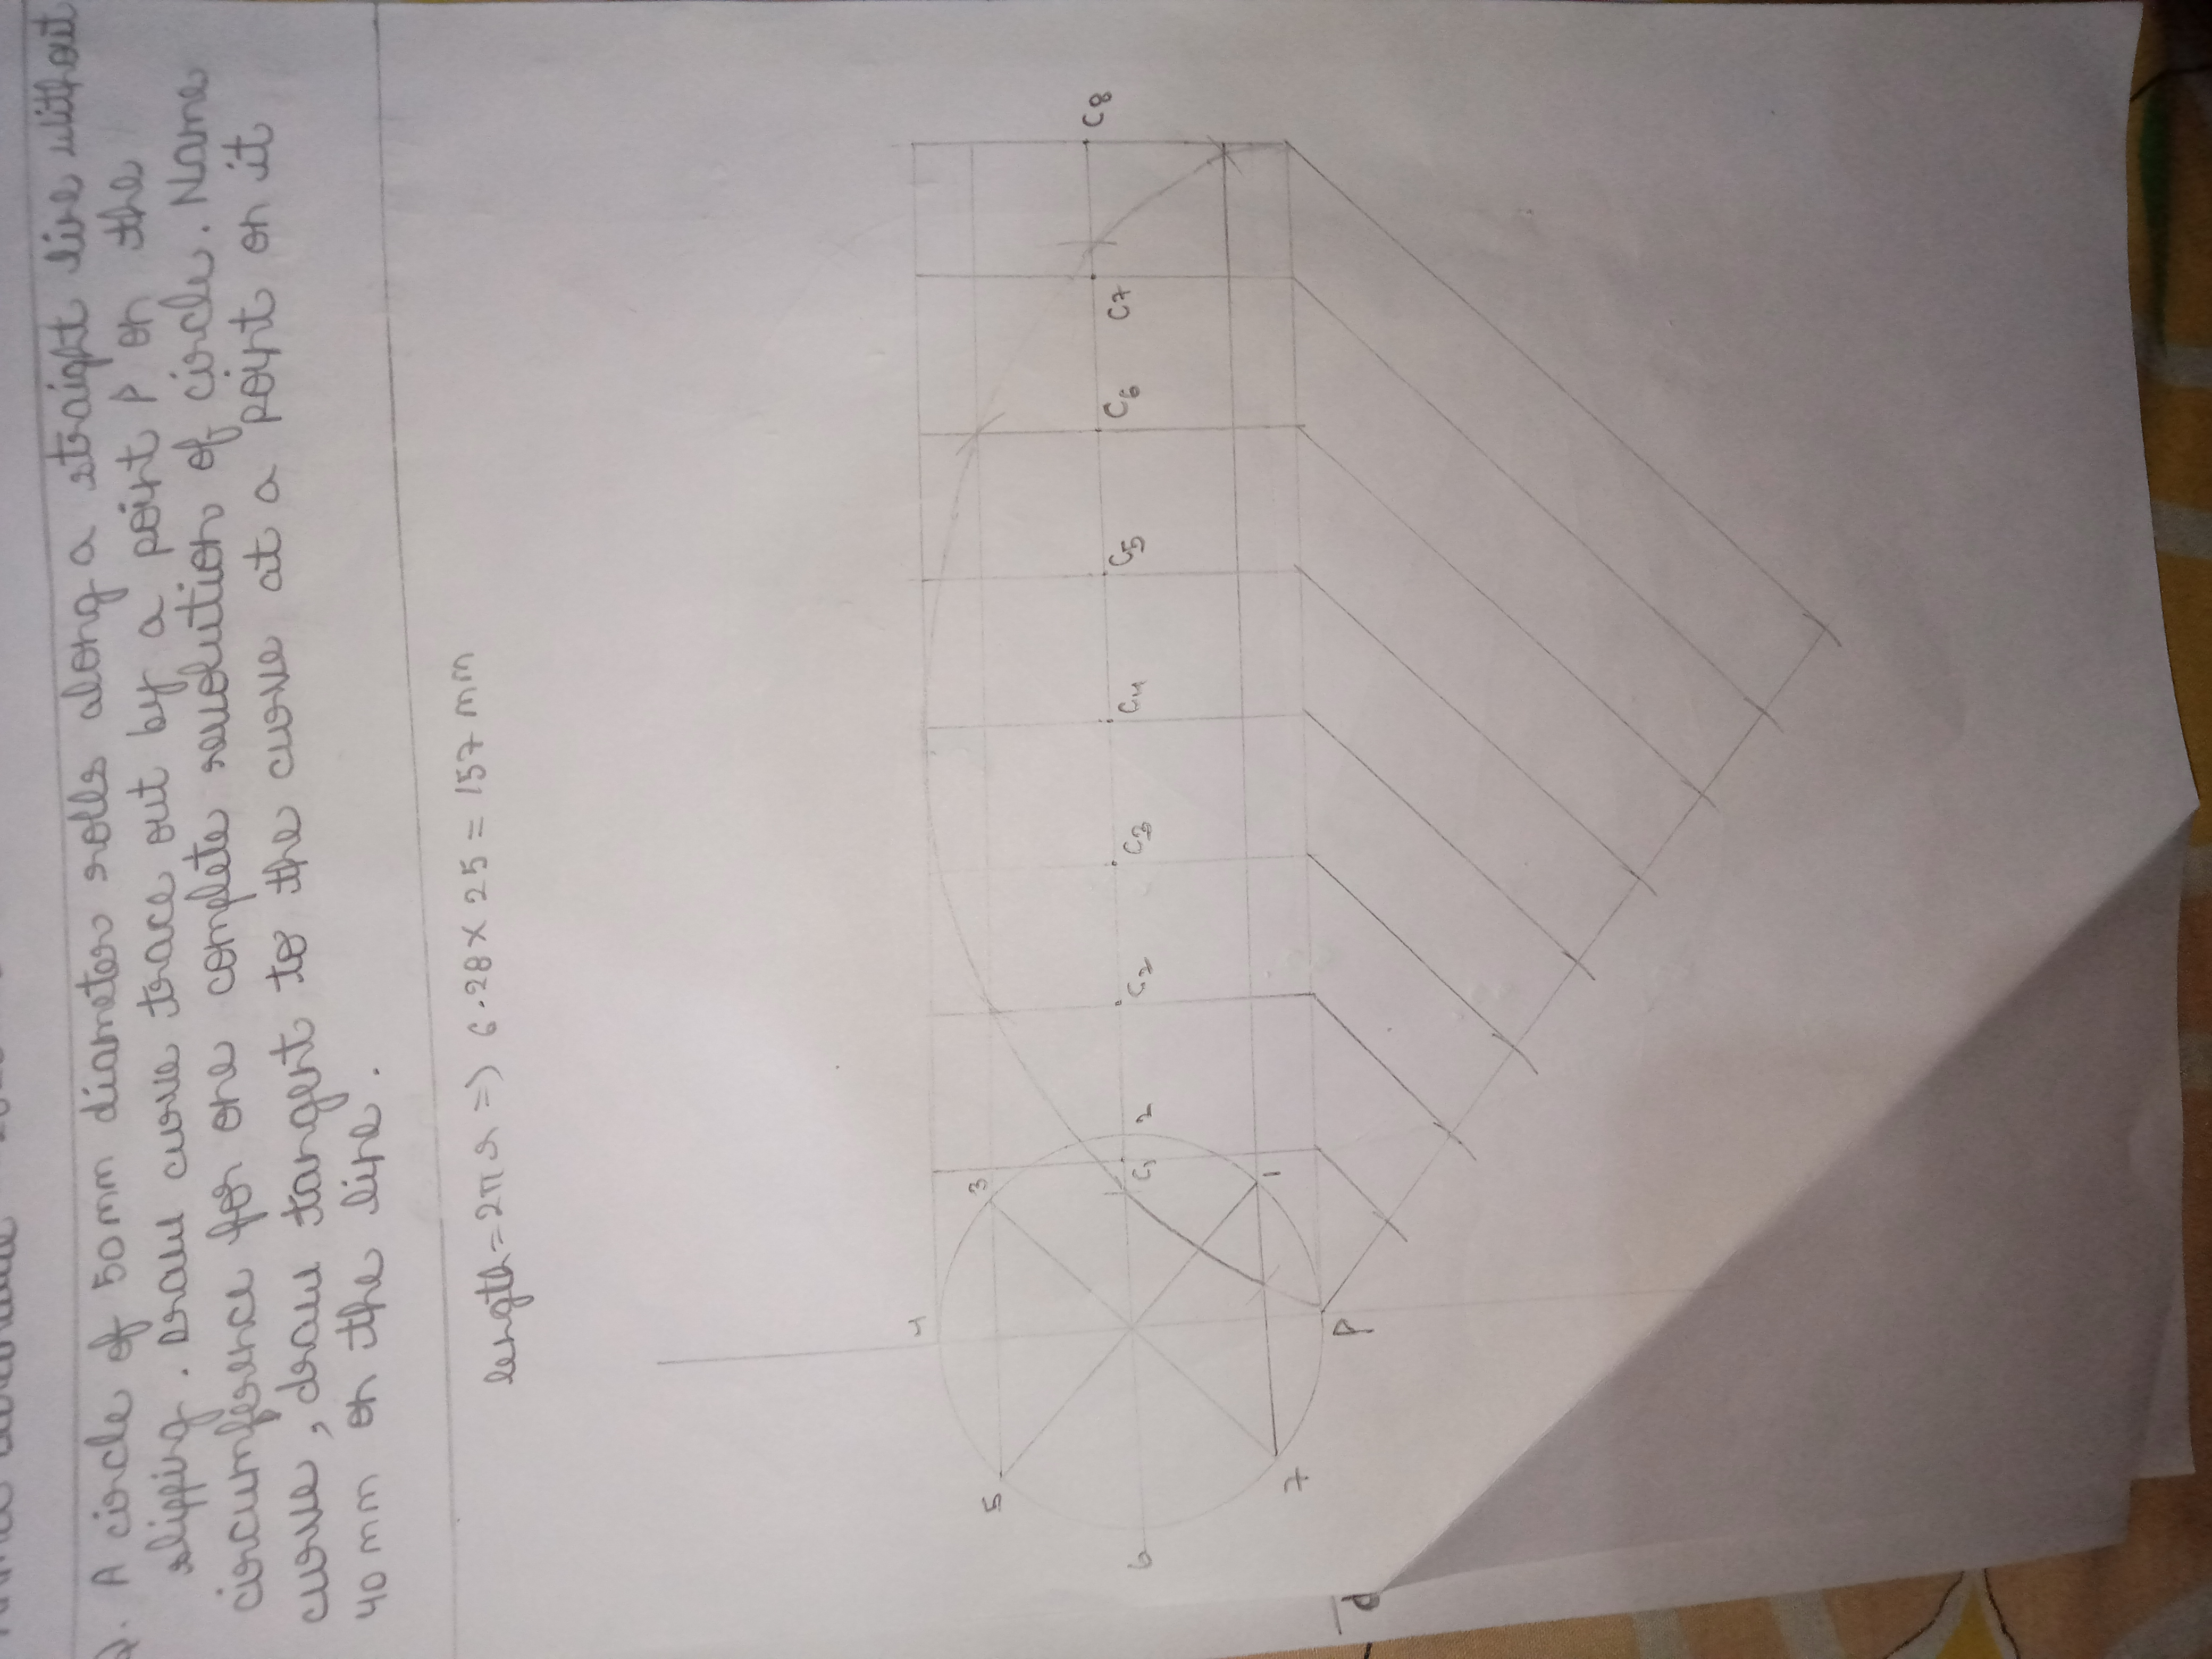 Q. A circle of 50mm diameter rolls along a straight line without
slipping. Draw curve trace out by a point P on the
circumference for one complete revolution of circle. Name
curve, draw tangent to the curve at a point on it
40 mm on the line.
length = 2πr => 6.28 x 25 = 157 mm
4
3
5
C1
2
C2
C3
C4
C5
C6
C7
C8
6
1
7
P